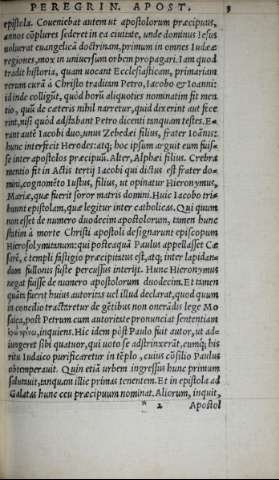 PEREGRIN. APOST. 3
epistola. Coueniebat autem ut apostolorum præcipuus,
annos cōplures sederet in ea ciuitate, unde dominus Iesus
uoluerat euangelicā doctrinam, primum in omnes Iudeæ
regiones, mox in uniuersum orbem propagari. Iam quod
tradit historia, quam uocant Ecclesiasticam, primariam
rerum curā à Christo traditam Petro, Iacobo & Ioanni:
id inde colligit, quòd horū aliquoties nominatim fit men
tio, quū de cæteris nihil narretur, quid dixerint aut fece
rint, nisi quòd adstabant Petro dicenti tanquam testes. E-
rant autē Iacobi duo, unus Zebedæi filius, frater Ioānis:
hunc interfecit Herodes: atq; hoc ipsum arguit eum fuis-
se inter apostolos præcipuū. Alter, Alphæi filius. Crebra
mentio fit in Actis tertij Iacobi qui dictus est frater do-
mini, cognomēto Iustus, filius, ut opinatur Hieronymus,
Mariæ, quæ fuerit soror matris domini. Huic Iacobo tri-
bunt epistolam, quæ legitur inter catholicas. Qui quum
non esset de numero duodecim apostolorum, tamen hunc
statim à morte Christi apostoli designarunt episcopum
Hierosolymitanum: qui posteaquā Paulus appellasset Cæ
sarē, è templi fastigio præcipitatus est, atq; inter lapidan-
dum fullonis fuste percussus interijt. Hunc Hieronymus
negat fuisse de numero apostolorum duodecim. Et tamen
quāti fuerit huius autoritas uel illud declarat, quod quum
in concilio tractaretur de gētibus non onerādis lege Mo
saica, post Petrum cum autoritate pronunciat sententiam
inquiens. Hic idem pōst Paulo fuit autor, ut ad-
iungeret sibi quatuor, qui uoto se adstrinxerāt, cumq; his
ritu Iudaico purificaretur in tēplo, cuius cōsilio Paulus
obtemperauit. Quin etiā urbem ingressus hunc primum
salutauit, tanquam illic primas tenentem. Et in epistola ad
Galatas hunc ceu præcipuum nominat. Aliorum, inquit,
* 2 Apostol